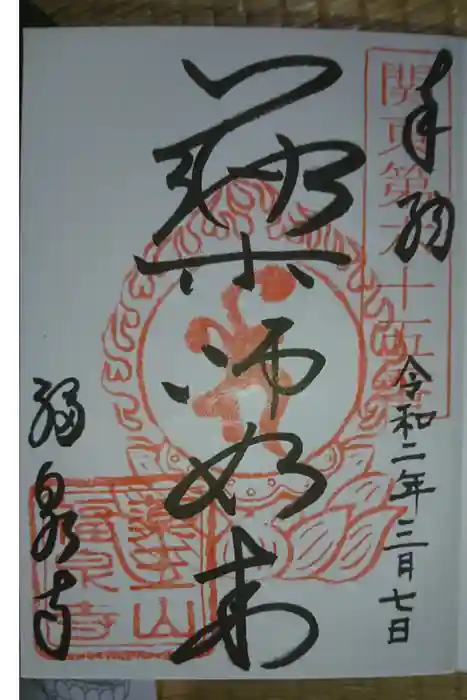 奉拝
関東第六十五番
令和二年三月七日
薬師如来
福泉寺
醫王山
福泉寺